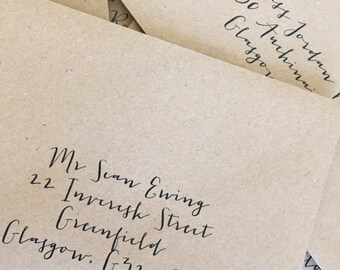 Jordan
Glasgow
Mr Sean Ewing
22 Inveresk Street
Greenfield
Glasgow, G32